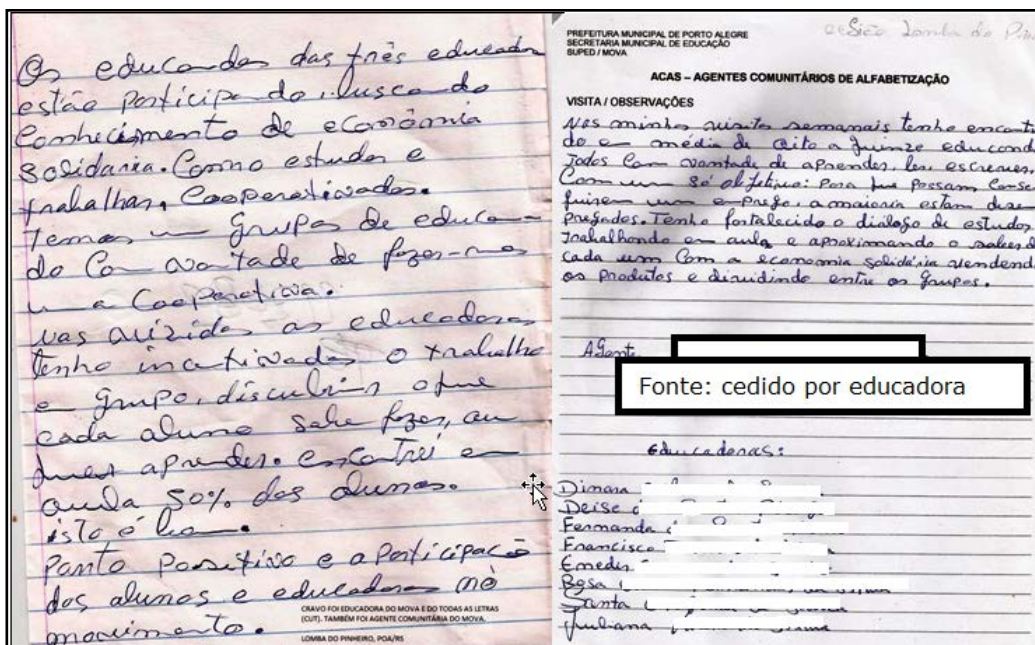 Os educandos das três educadora
estão participando, busca do
Conhecimento de econômia
Solidaria. Como estudos e
trabalhos, Cooperativados.
Temos um Grupos de educan-
do Com vontade de fazer-mos
uma Cooperativa.
nas as educadoras
tenho incentivados o trabalho
em grupo, discutirm o que
cada aluno Sabe fazer, ou
quer aprender. encontrei em
aula 50% dos alunos.
isto é bom.
Ponto Positivo e a Participação
dos alunos e educadoras no
movimento.
CRAVO FOI EDUCADORA DO MOVA E DO TODAS AS LETRAS
(CUT). TAMBÉM FOI AGENTE COMUNITÁRIA DO MOVA.
LOMBA DO PINHEIRO, POA/RS
PREFEITURA MUNICIPAL DE PORTO ALEGRE
SECRETARIA MUNICIPAL DE EDUCAÇÃO
SUPED / MOVA
Lomba do
ACAS – AGENTES COMUNITÁRIOS DE ALFABETIZAÇÃO
VISITA / OBSERVAÇÕES
Nas minhas visita semanais tenho encontr
do em média de oito a quinze educand
Todos Com vontade de aprender, ler, escrever,
Com um só objetivo: Para que Possam Conse
guirem um emprego, a maioria estam dese
pregados. Tenho fortalecido o diálogo de estudos
Trabalhando em aula e aproximando o saber
cada um Com a economia solidária vendend
os produtos e dividindo entre os Grupos.
Agente
Fonte: cedido por educadora
Educadoras:
Dinara
Deise
Fernanda
Francisca
Enedir
Rosa
Santa
Juliana